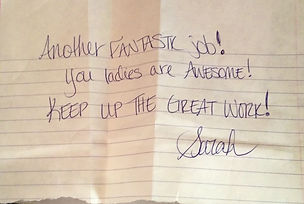 Another FANTASTIC job!
You ladies are AWESOME!
KEEP UP THE GREAT WORK!
Sarah